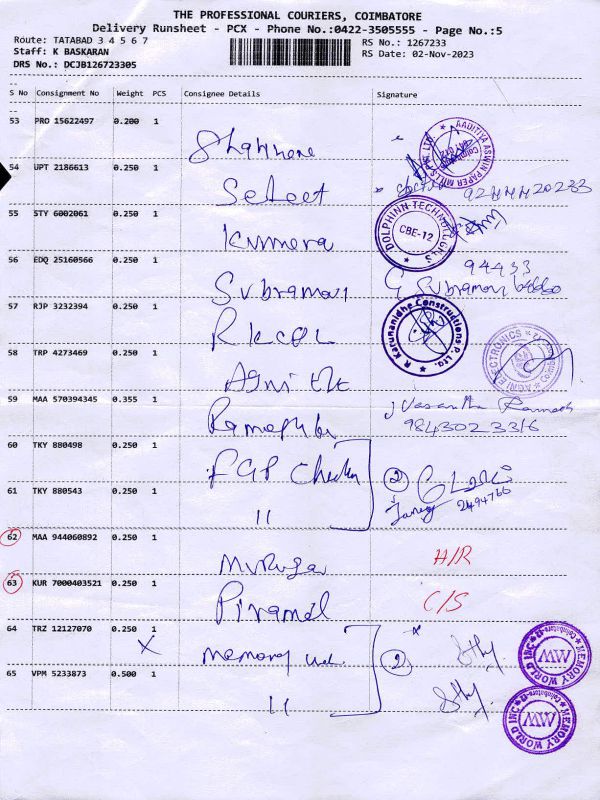 THE PROFESSIONAL COURIERS, COIMBATORE
Delivery Runsheet - PCX - Phone No.:0422-3505555 - Page No.:5
Route: TATABAD 3 4 5 6 7
Staff: K BASKARAN
DRS No.: DCJB126723305
RS No.: 1267233
RS Date: 02-Nov-2023
S No Consignment No Weight PCS Consignee Details Signature
53 PRO 15622497 0.200 1
AADITIKA ASWIN PAPER MILLS PVT. LTD.
54 UPT 2186613 0.250 1 Select
55 STY 6002061 0.250 1 Kumera
DOLPHINN TECHNOLOGIES CBE-12
56 EDQ 25160566 0.250 1 Subramani
94433
G Subramani
57 RJP 3232394 0.250 1 R KCPL
R Karunanidhe Constructions P. Ltd.
58 TRP 4273469 0.250 1 Agni Ele
AGNI ELECTRONICS
59 MAA 570394345 0.355 1
Vasantha Ramesh
9843023316
60 TKY 880498 0.250 1 2
2494766
61 TKY 880543 0.250 1 11
62 MAA 944060892 0.250 1 Murugan H/R
63 KUR 7000403521 0.250 1 Piramal C/S
64 TRZ 12127070 0.250 1 x Memory 2
MEMORY WORLD INC MW Coimbatore
65 VPM 5233873 0.500 1 11
MEMORY WORLD INC MW Coimbatore